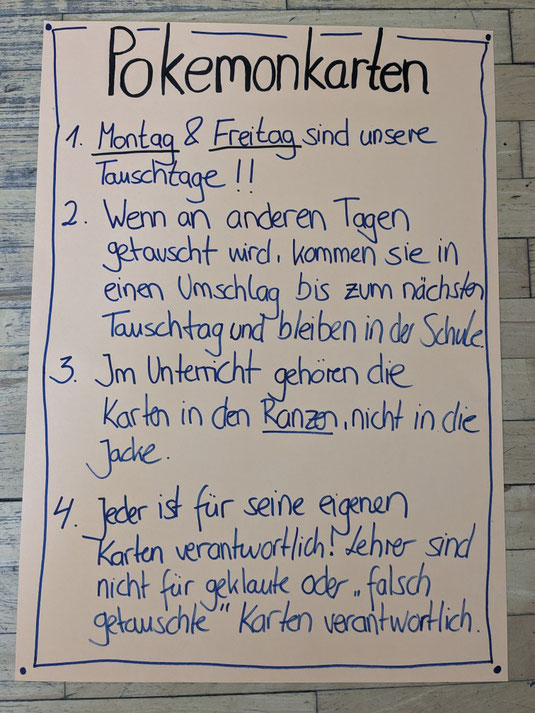 Pokemonkarten
1. Montag & Freitag sind unsere
Tauschtage !!
2. Wenn an anderen Tagen
getauscht wird, kommen sie in
einen Umschlag bis zum nächsten
Tauschtag und bleiben in der Schule.
3. Im Unterricht gehören die
Karten in den Ranzen, nicht in die
Jacke.
4. Jeder ist für seine eigenen
Karten verantwortlich! Lehrer sind
nicht für geklaute oder „falsch
getauschte" Karten verantwortlich.